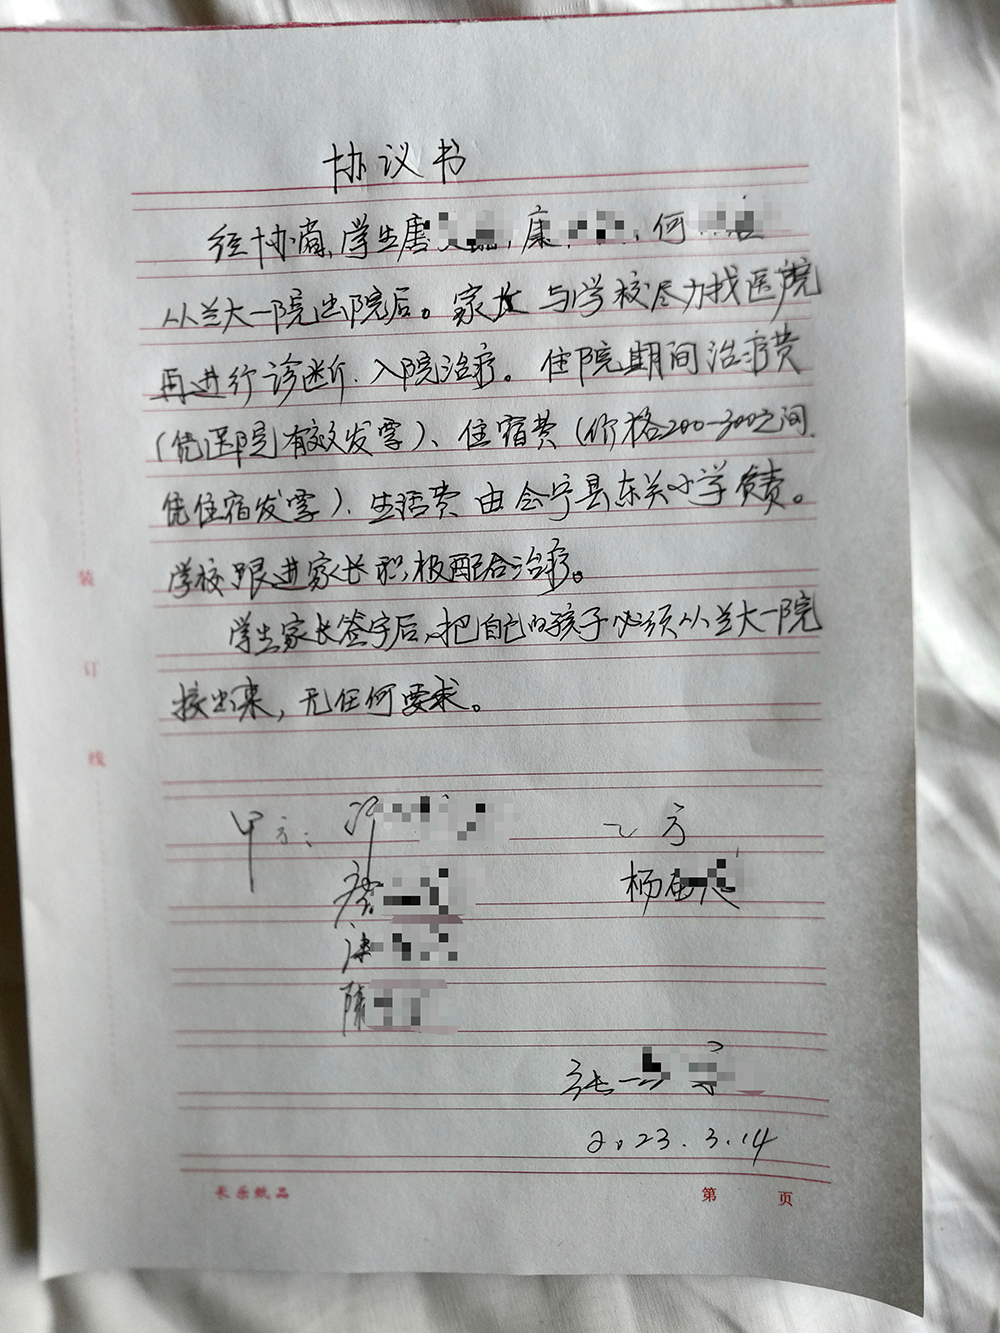 协议书
经协商,学生唐,康,何
从兰大一院出院后。家长与学校尽力找医院
再进行诊断.入院治疗。住院期间治疗费
(凭医院有效发票)、住宿费(价格200-300之间.
凭住宿发票)、生活费由会宁县东关小学负责。
学校跟进家长积极配合治疗。
学生家长签字后,把自己的孩子必须从兰大一院
接出来,无任何要求。
甲方: 乙方
杨
陈
张
2023.3.14
装
订
线
长乐纸品
第 页